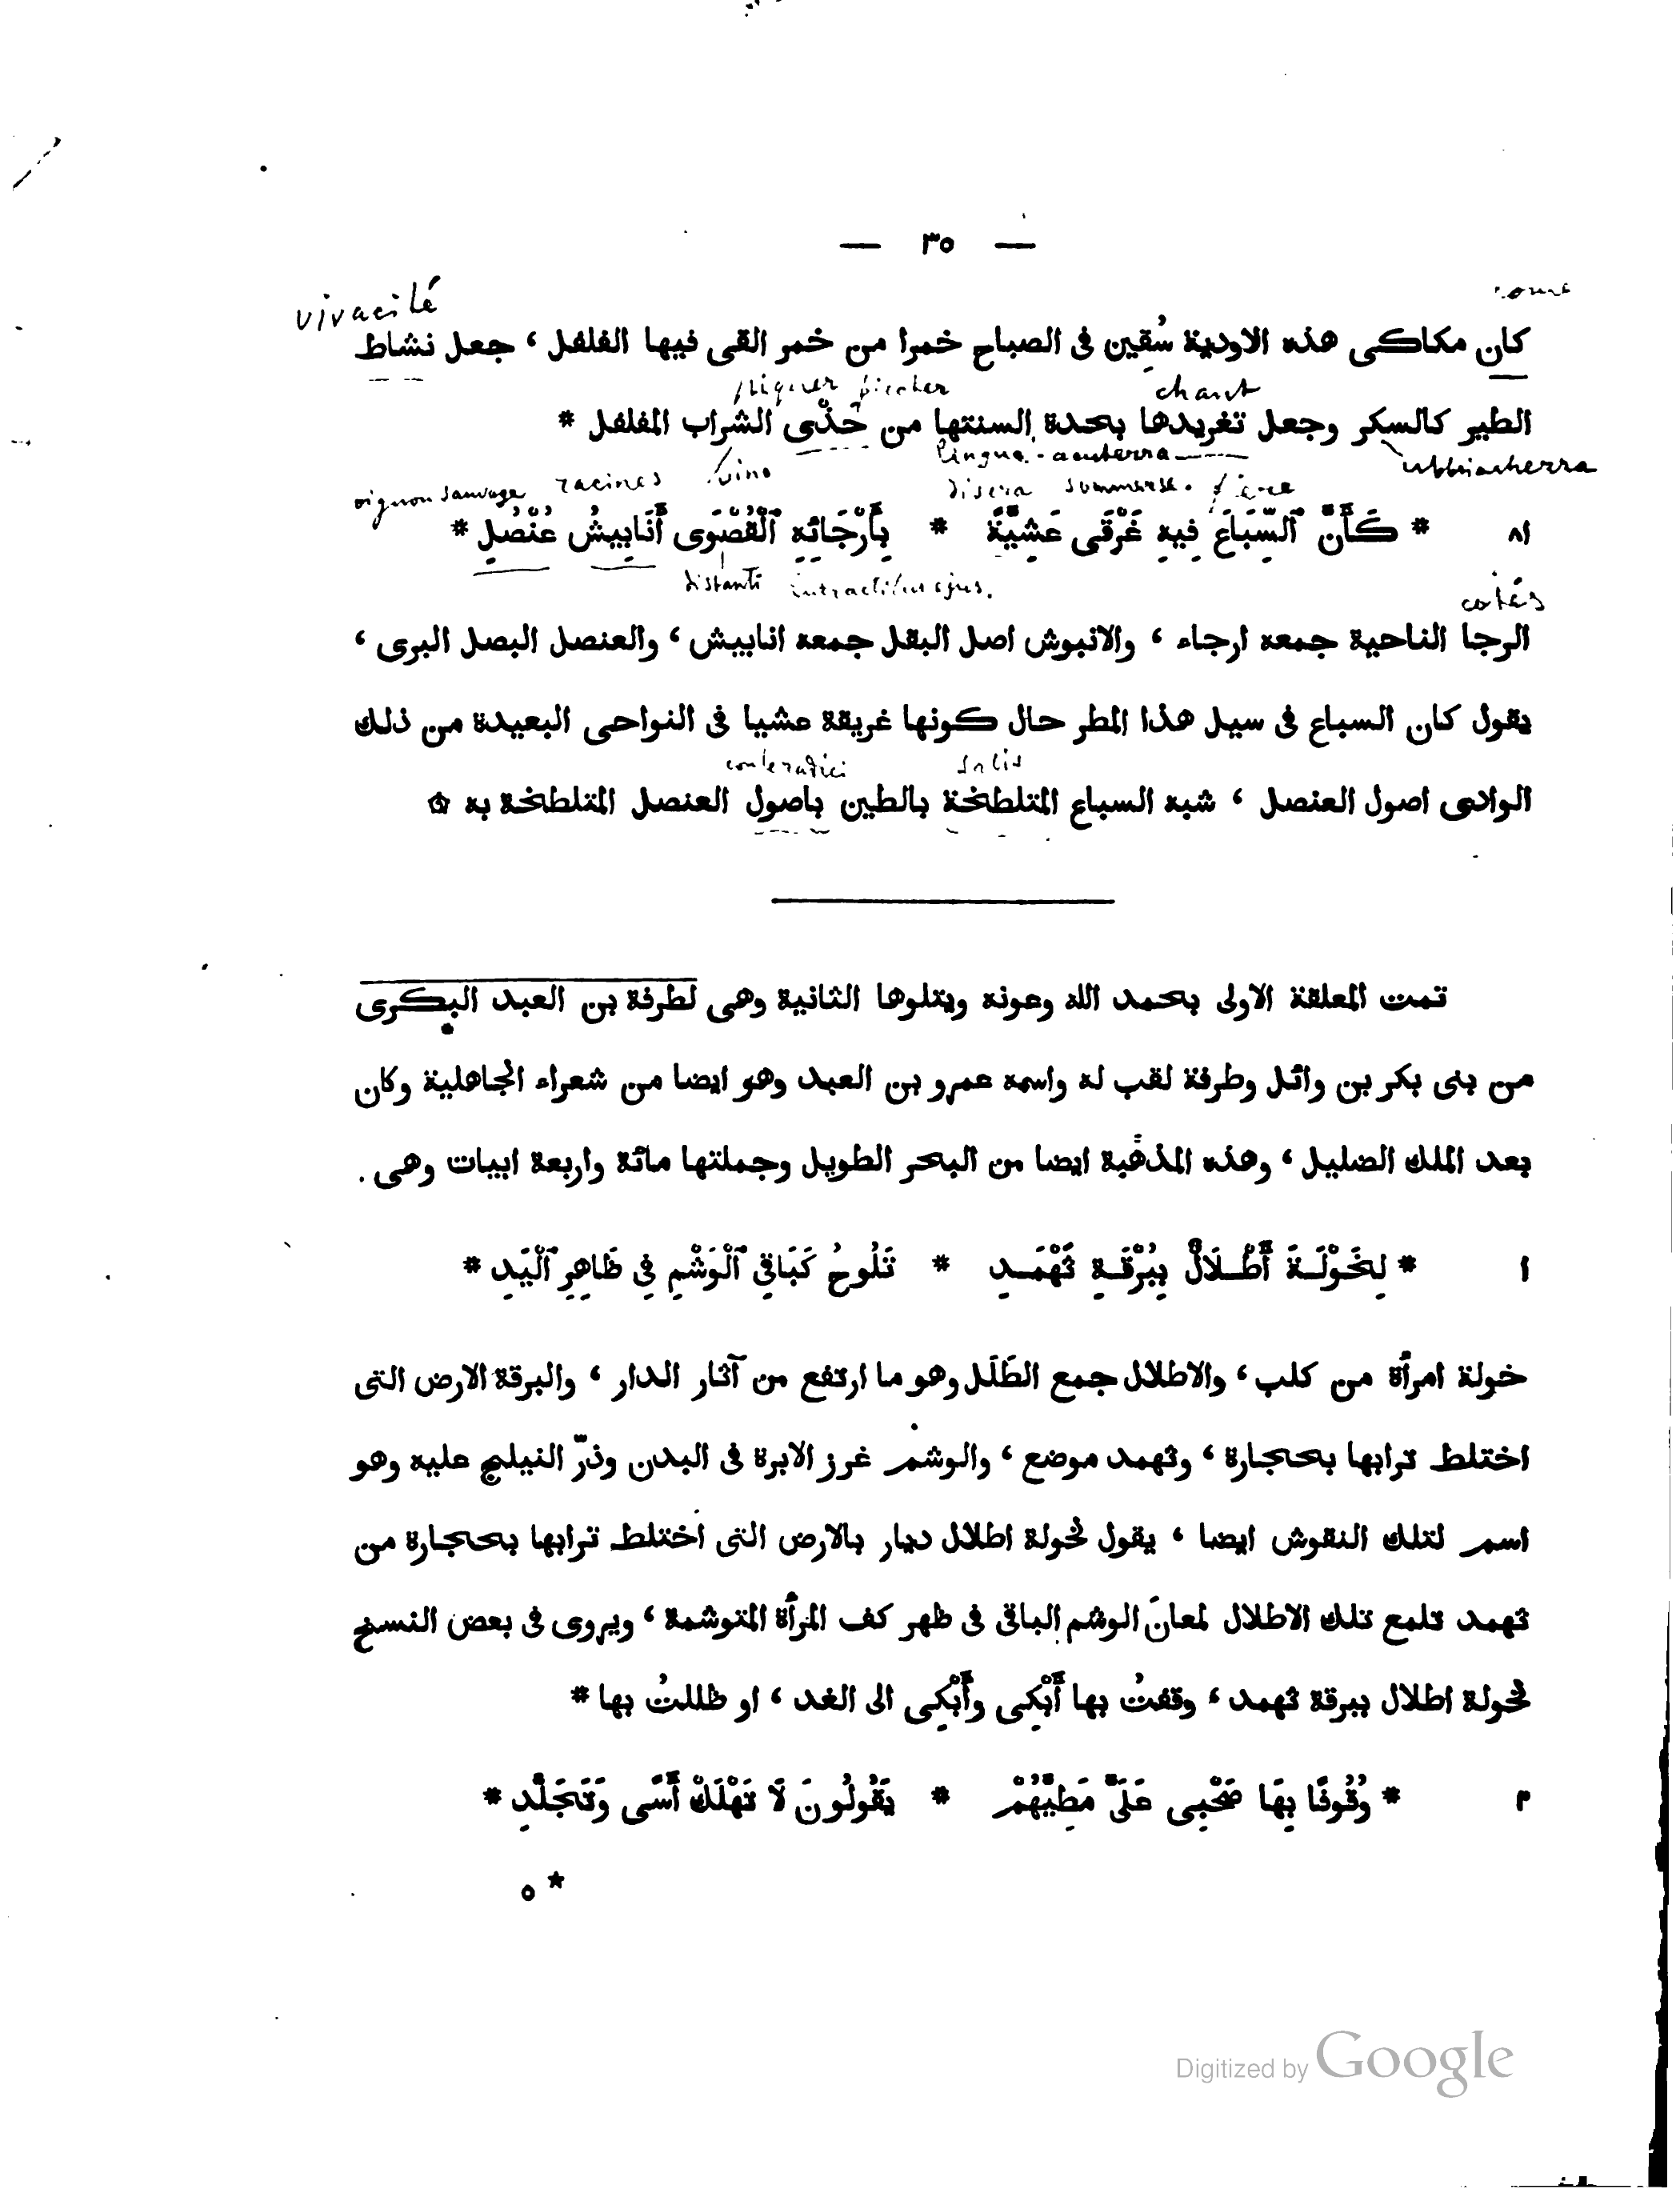 — ٣٥ —
vivacité
كان مكاكى هذه الاودية سُقِين فى الصباح خمرا من خمر القى فيها الفلفل ، جعل نشاط
piquer chant
الطير كالسكر وجعل تغريدها بحدة السنتها من حَذْىِ الشراب المفلفل *
lingua ubbriacherra
oignon sauvage racines vino
٨١ * كَأَنَّ ٱلسِّبَاعَ فِيهِ غَرْقَى عَشِيَّةً * بِأَرْجَائِهِ ٱلْقُصْوَى أَنَابِيشُ عُنْصُلِ *
distanti cotés
الرجا الناحية جمعه ارجاء ، والانبوش اصل البقل جمعه انابيش ، والعنصل البصل البرى ،
يقول كان السباع فى سيل هذا المطر حال كونها غريقة عشيا فى النواحى البعيدة من ذلك
الوادى اصول العنصل ، شبه السباع المتلطخة بالطين باصول العنصل المتلطخة به ۞
تمت المعلقة الاولى بحمد الله وعونه ويتلوها الثانية وهى لطرفة بن العبد البكرى
من بنى بكر بن وائل وطرفة لقب له واسمه عمرو بن العبد وهو ايضا من شعراء الجاهلية وكان
بعد الملك الضليل ، وهذه المذهبة ايضا من البحر الطويل وجملتها مائة واربعة ابيات وهى .
١ * لِخَوْلَةَ أَطْلَالٌ بِبُرْقَةِ ثَهْمَدِ * تَلُوحُ كَبَاقِي ٱلْوَشْمِ فِي ظَاهِرِ ٱلْيَدِ *
خولة امرأة من كلب ، والاطلال جمع الطَلَل وهو ما ارتفع من آثار الدار ، والبرقة الارض التى
اختلط ترابها بحجارة ، وثهمد موضع ، والوشم غرز الابرة فى البدن وذرّ النيلج عليه وهو
اسم لتلك النقوش ايضا ، يقول لخولة اطلال ديار بالارض التى اختلط ترابها بحجارة من
ثهمد تلمع تلك الاطلال لمعانَ الوشم الباقى فى ظهر كف المرأة المتوشمة ، ويروى فى بعض النسخ
لخولة اطلال ببرقة ثهمد ، وقفتُ بها أَبْكِى وأَبْكِى الى الغد ، او ظللتُ بها *
٢ * وُقُوفًا بِهَا صَحْبِى عَلَىَّ مَطِيَّهُمْ * يَقُولُونَ لَا تَهْلَكْ أَسًى وَتَجَلَّدِ *
٥ *
Digitized by Google